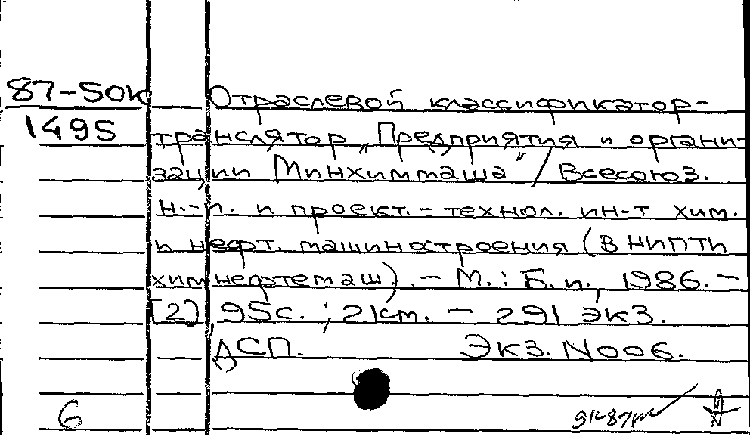 87-5ОК Отраслевой классификатор-
1495 транслятор „Предприятия и органи-
зации Минхиммаша" / Всесоюз.
н.-и. и проект.-технол. ин-т хим.
и нефт. машиностроения (ВНИПТИ
химнефтемаш). - М.: Б.и., 1986. -
[2] 95с. ; 21см. - 291 экз.
ДСП. Экз. N006.
6